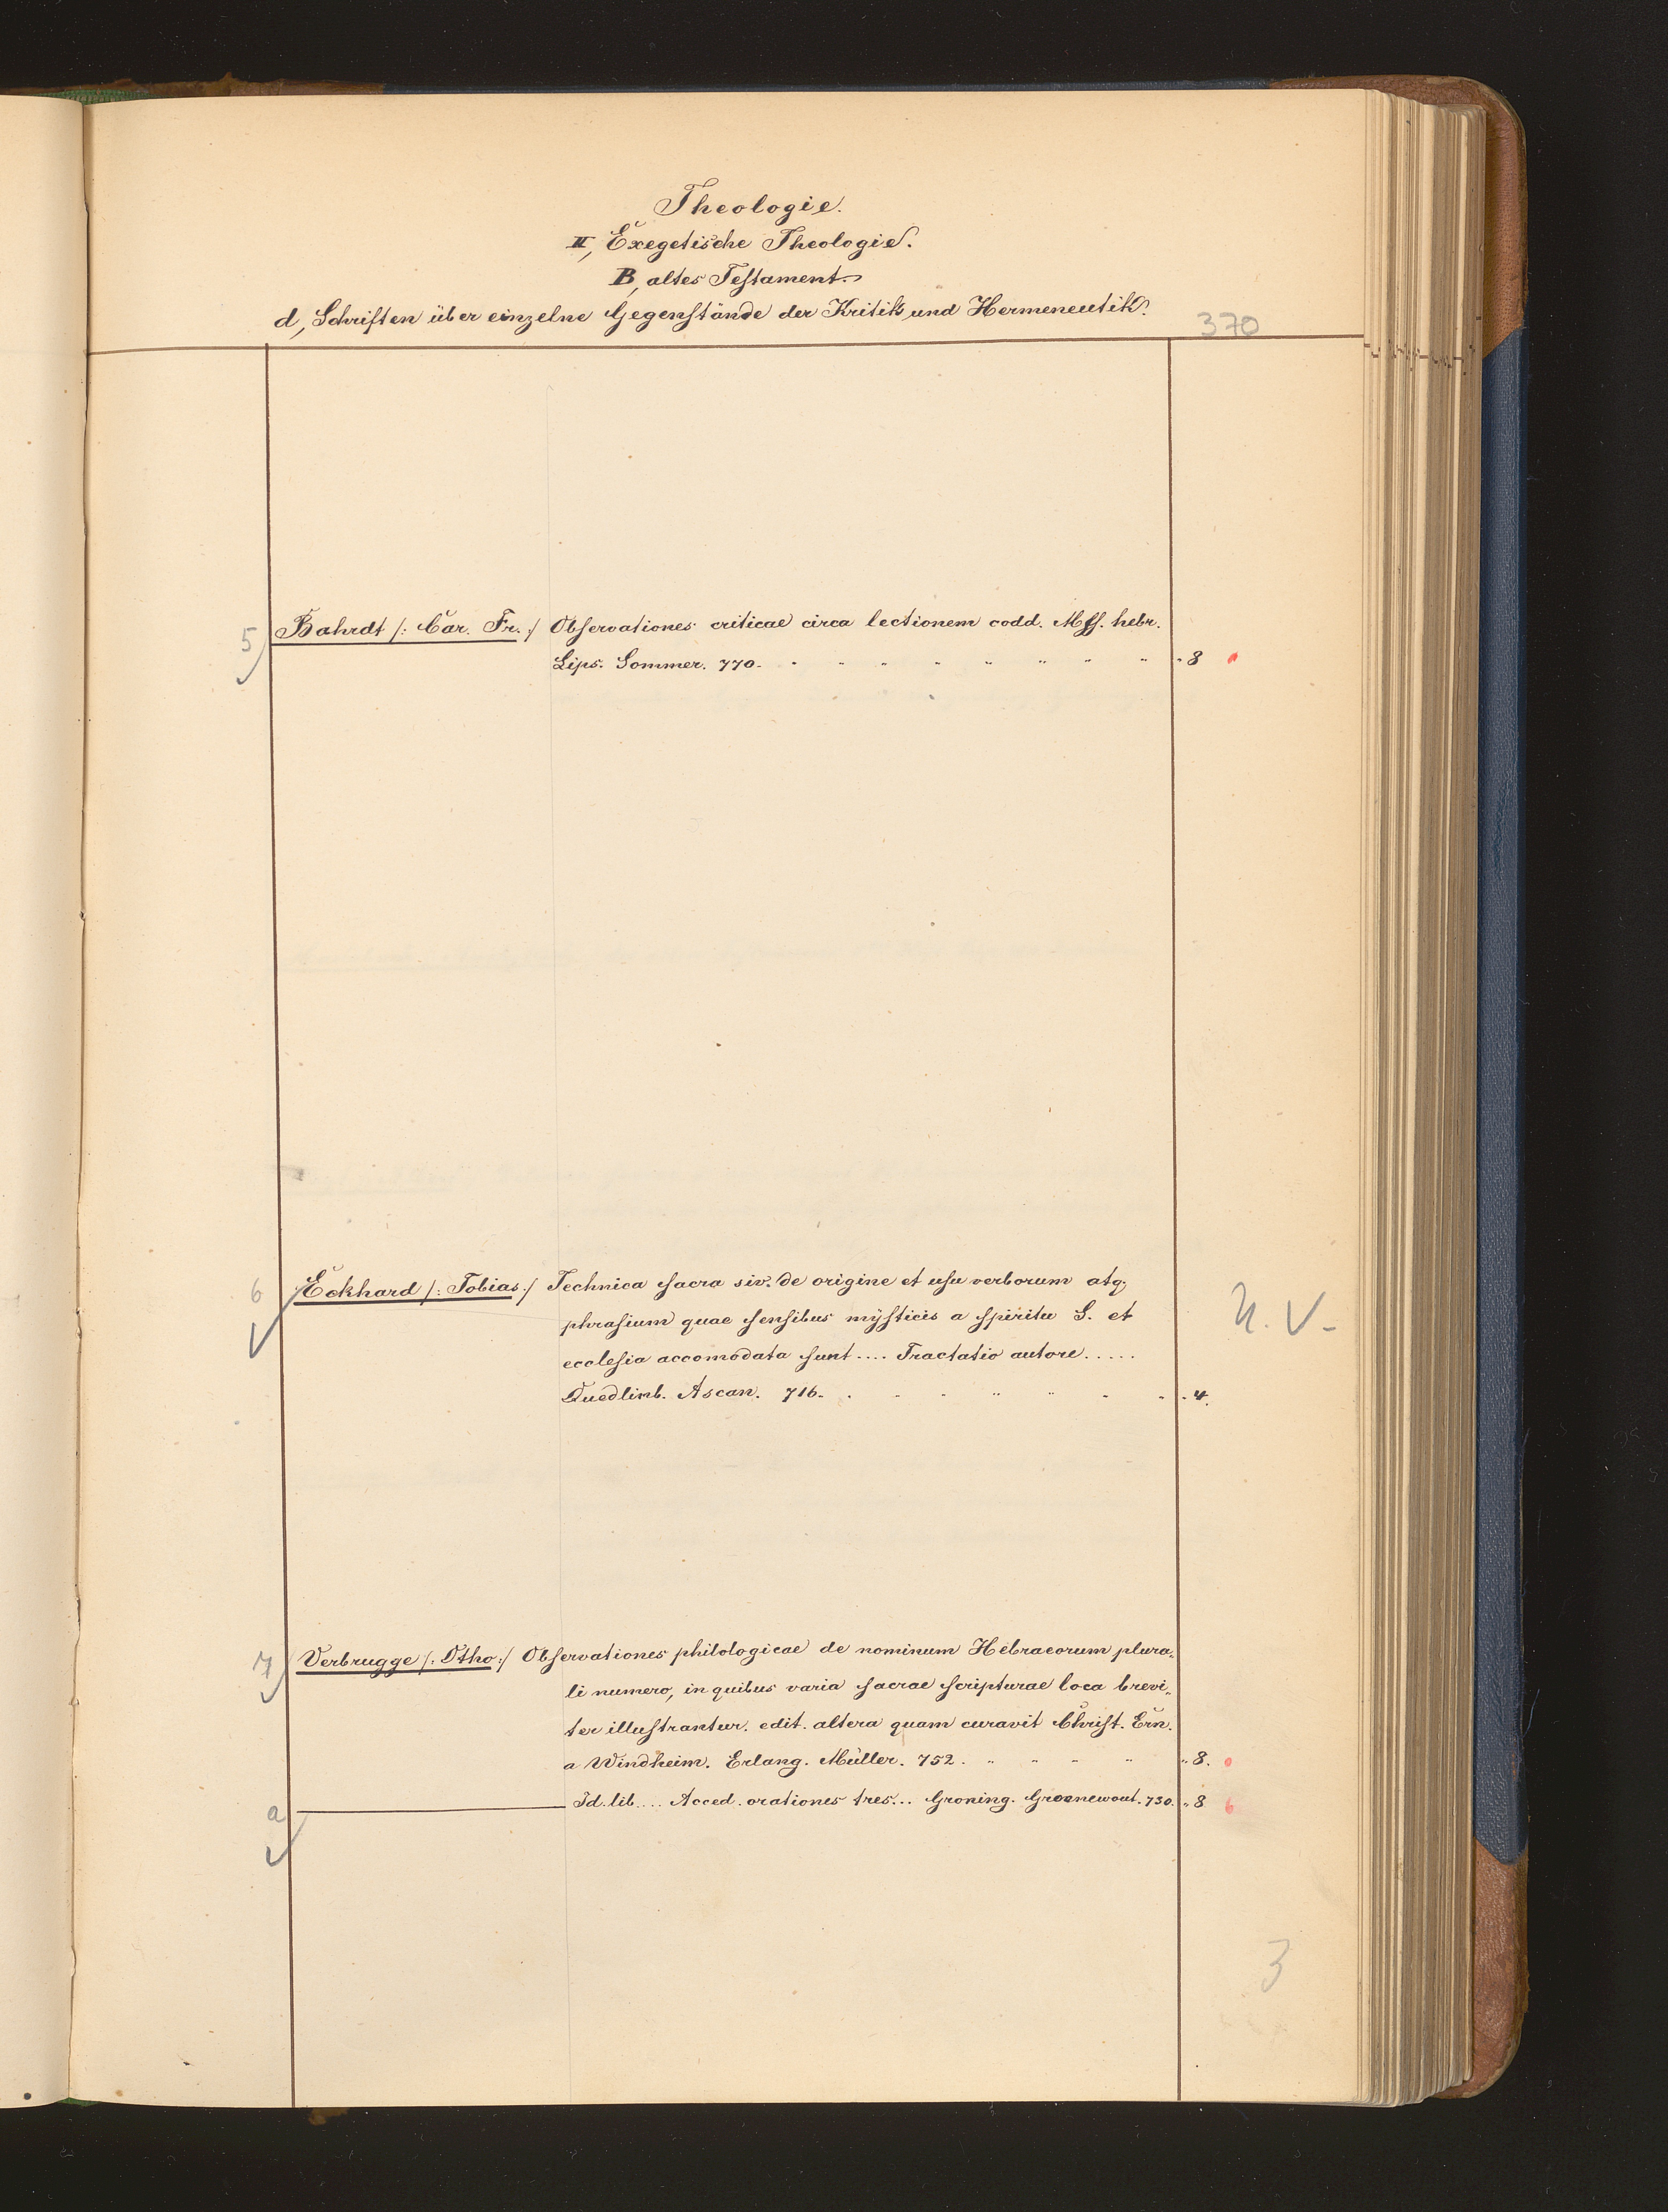 Theologie.
II, Exegetische Theologie.
B, altes Testament.
d, Schriften über einzelne Gegenstände der Kritik und Hermeneutik.
370
5 Bahrdt /: Car. Fr. :/ Observationes criticae circa lectionem codd. Mss. hebr.
Lips. Sommer. 770. 8
6 Eckhard /: Tobias :/ Technica sacra siv. de origine et usu verborum atq.
phrasium quae sensibus mysticis a spiritu S. et
ecclesia accomodata sunt .... Tractatio autore .....
Quedlinb. Ascan. 716. 4.
N. V.
7 Verbrugge /: Otho :/ Observationes philologicae de nominum Hebraeorum plura-
li numero, in quibus varia sacrae scripturae loca brevi-
ter illustrantur. edit. altera quam curavit Christ. Ern.
a Windheim. Erlang. Müller. 752. 8.
a Id. lib.... Acced. orationes tres... Groning. Groenewout. 730. 8
3